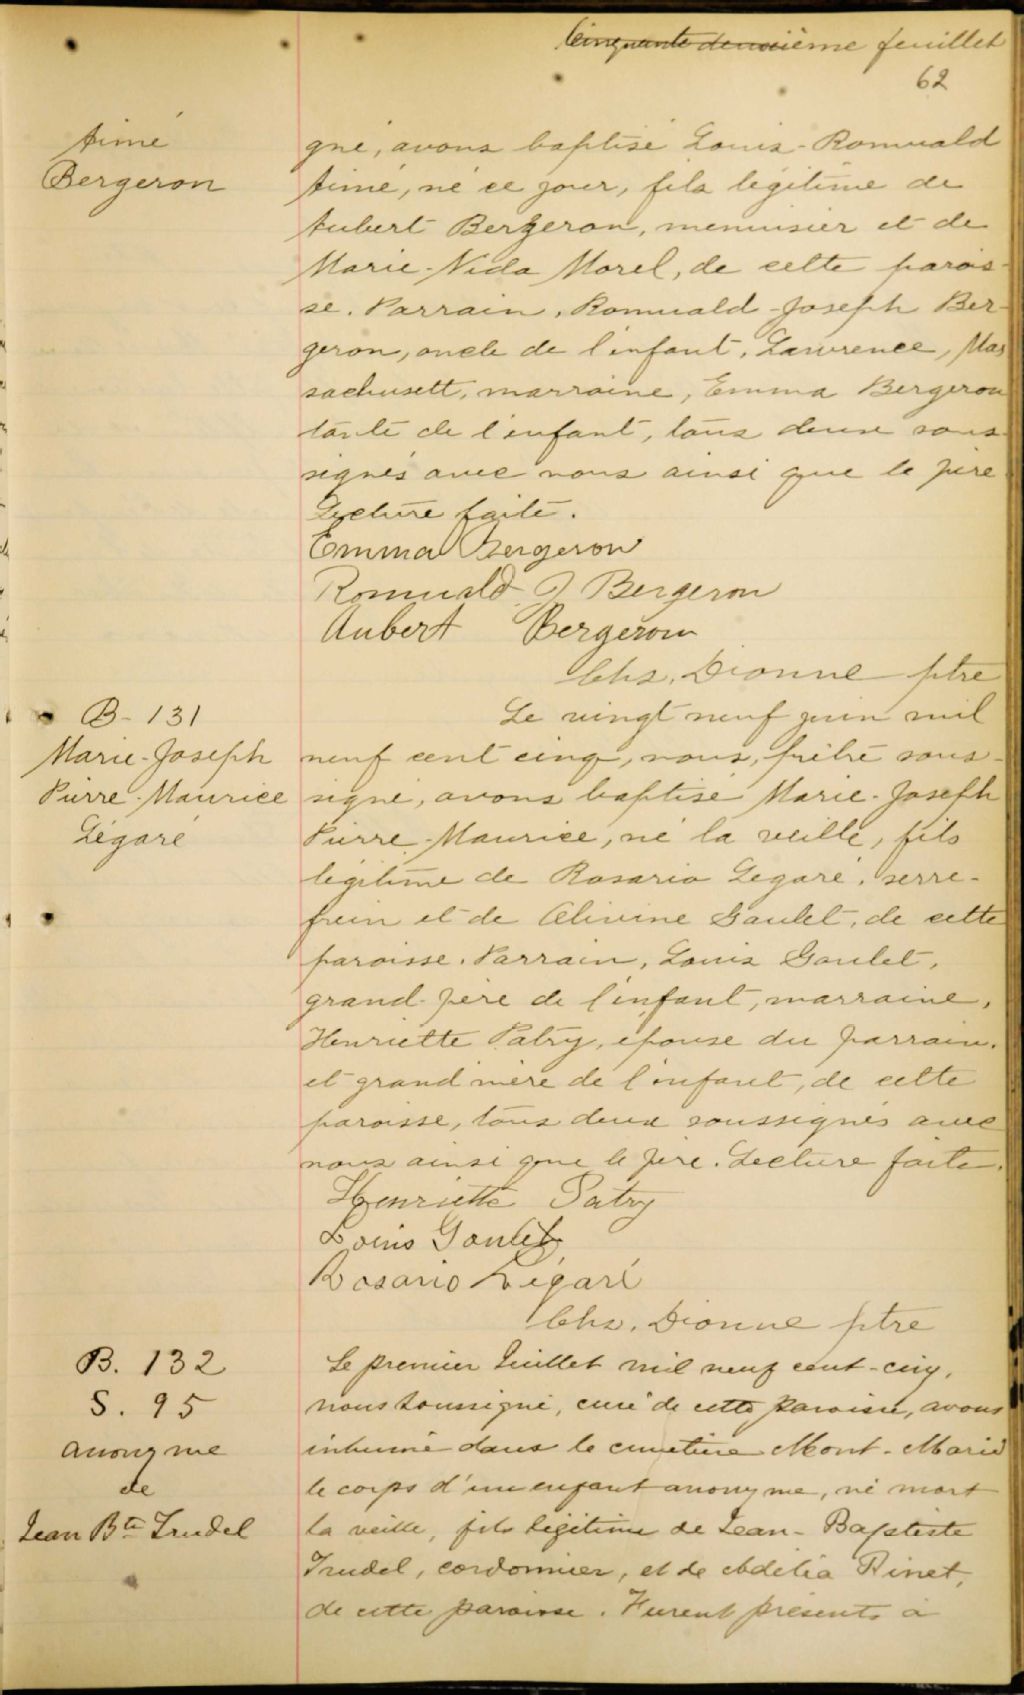 Cinquante deuxième feuillet
62
Aimé
Bergeron
gné, avons baptisé Louis-Romuald
Aimé, né ce jour, fils légitime de
Aubert Bergeron, menuisier et de
Marie-Nida Morel, de cette parois-
se. Parrain, Romuald-Joseph Ber-
geron, oncle de l'enfant, Lawrence, Mas
sachusett, marraine, Emma Bergeron
tante de l'enfant, tous deux sous-
signés avec nous ainsi que le père
Lecture faite.
Emma Bergeron
Romuald J Bergeron
Aubert Bergeron
Chs. Dionne ptre
B- 131
Marie-Joseph
Pierre-Maurice
Légaré
Le vingt neuf juin mil
neuf cent cinq, nous, prêtre sous-
signé, avons baptisé Marie-Joseph
Pierre-Maurice, né la veille, fils
légitime de Rosario Légaré, serre-
frein et de Alivine Goulet, de cette
paroisse. Parrain, Louis Goulet,
grand-père de l'enfant, marraine,
Henriette Patry, épouse du parrain,
et grand'mère de l'enfant, de cette
paroisse, tous deux soussignés avec
nous ainsi que le père. Lecture faite.
Henriette Patry
Louis Goulet
Rosario Légaré
Chs. Dionne ptre
B. 132
S. 95
anonyme
de
Jean Bte Trudel
Le premier Juillet mil neuf cent-cinq,
nous soussigné, curé de cette paroisse, avons
inhumé dans le cimetière Mont-Marie
le corps d'un enfant anonyme, né mort
la veille, fils légitime de Jean-Baptiste
Trudel, cordonnier, et de Adélia Binet,
de cette paroisse. Furent présents à